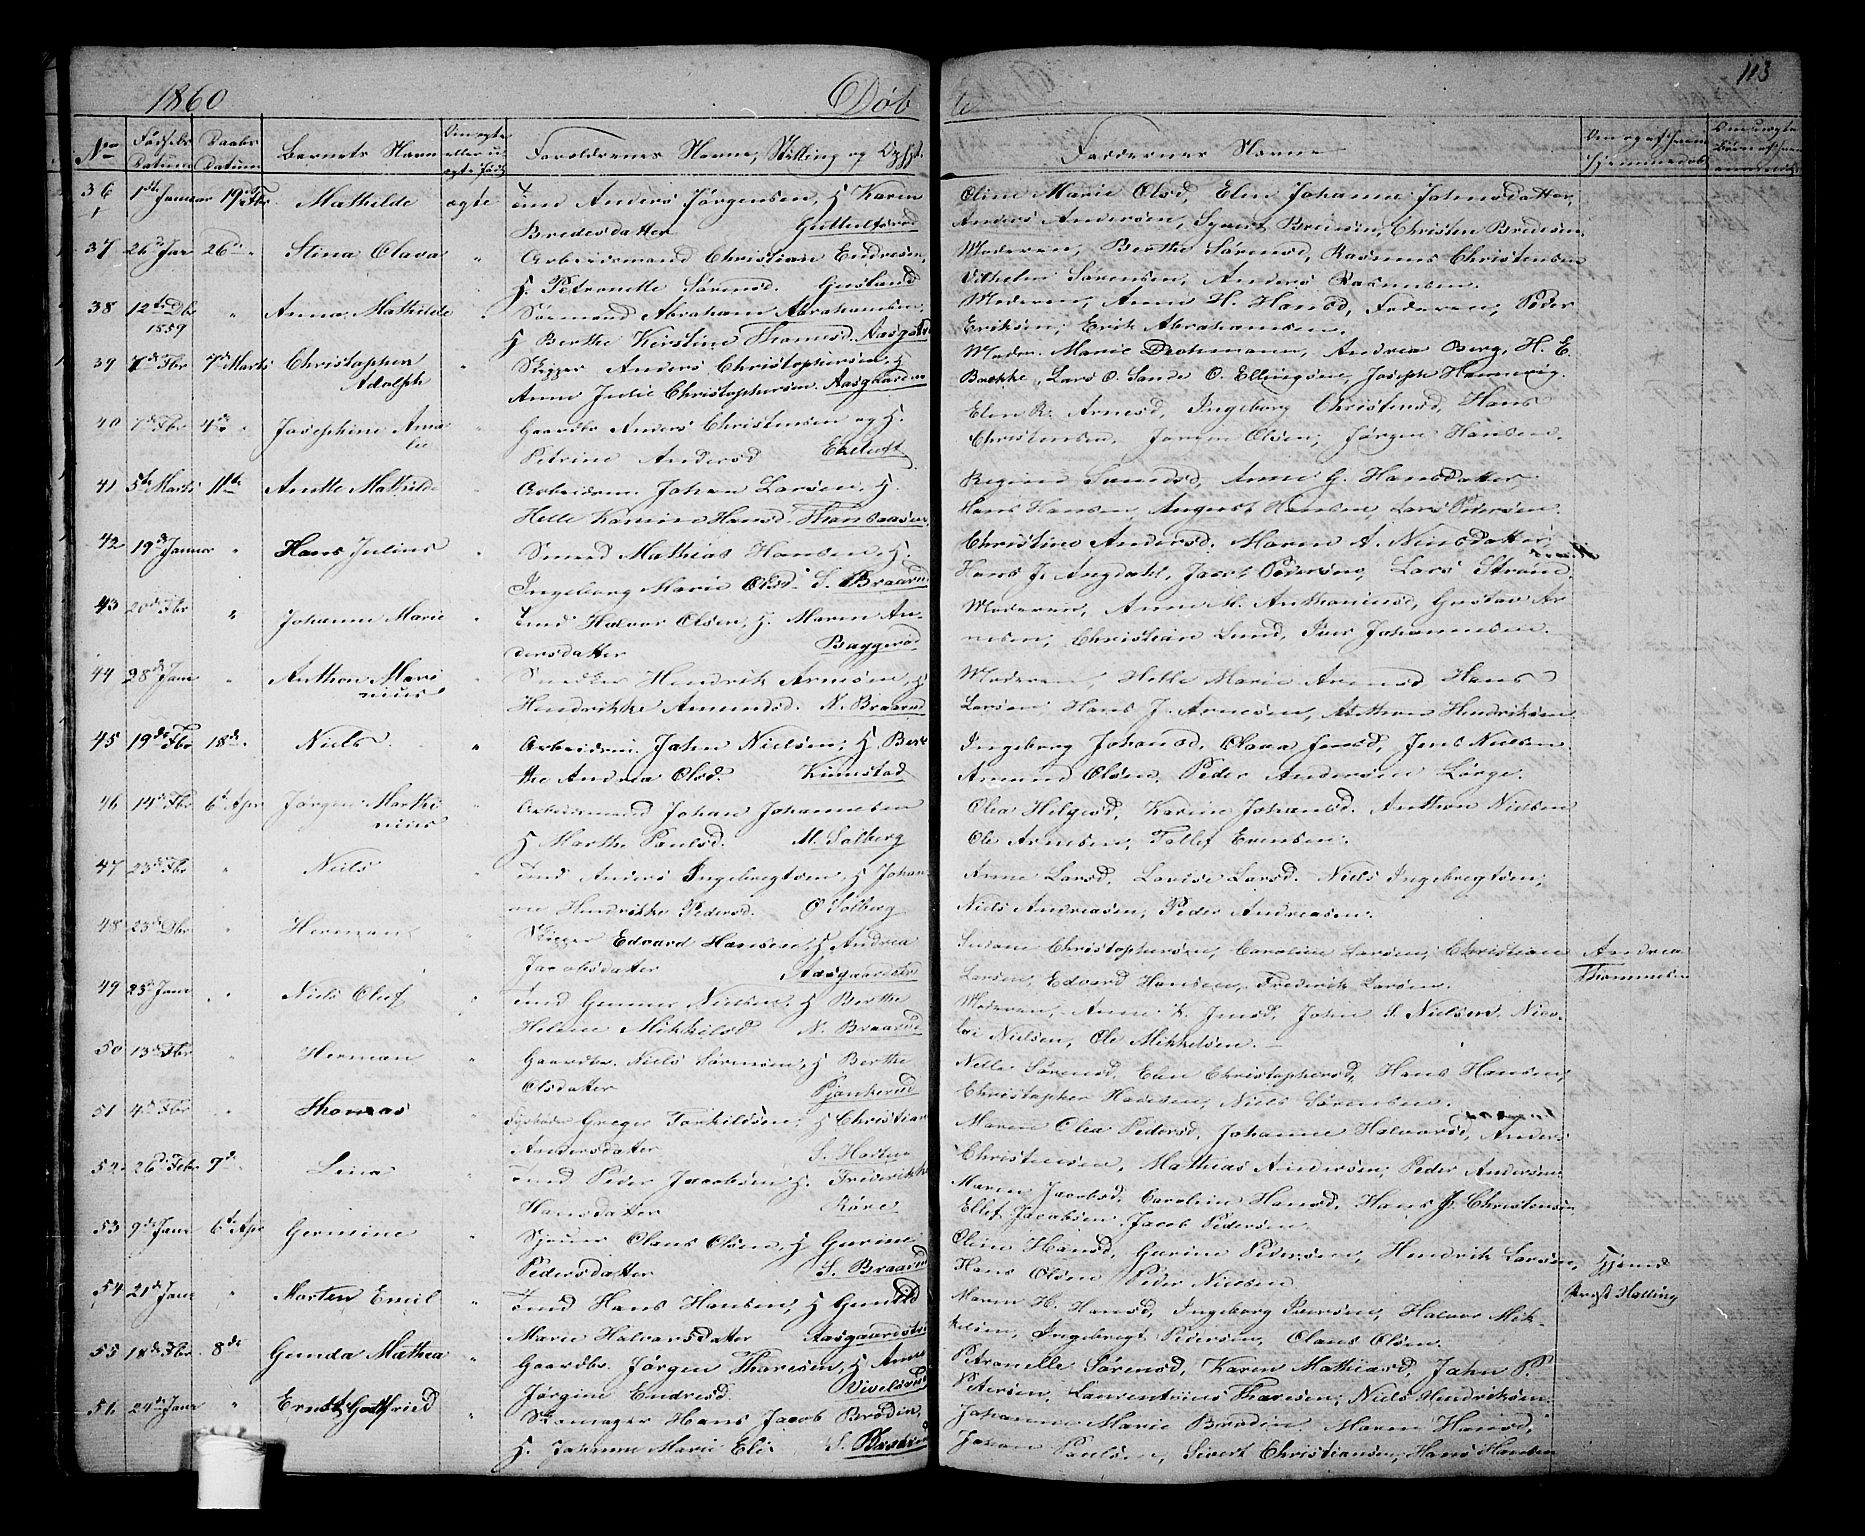 1860
Døb
te
113
No
Fødsels Datum
Daabs Datum
Barnets Navn
Om ægte eller uægte født
Forældrenes Navne, Stilling og
Faddernes Navne
36 1ste Januar 19de Fbr Mathilde ægte Tmd Anders Jørgensen, H Karen
Bredesdatter Guttelsrød
Oline Marie Olsd, Elen Johanne Johnsdatter,
Anders Andersen, Syvert Brensen, Christen Bredesen
37 26d Jan 26de " Stina Olava " Arbeidsmand Christian Endresen,
H. Petronelle Sørensd. Gusland
Moderen, Berthe Sørensd, Rasmus Christensen
Vilhelm Sørensen, Anders Rasmusen.
38 12te Dbr 1859 " Anna Mathilde " Sømand Abraham Abrahamsen,
H Berthe Kirstine Thomasd. Aasgstr
Moderen, Anne H. Hansd, Faderen, Peder
Eriksen, Erik Abrahamsen.
39 7de Fbr 7d Marts Christopher Adolph " Skipper Anders Christophersen, H
Anne Julie Christophersen Aasgaardstr
Moder. Marie Dechmann, Andrea Berg, H. E.
Bakke, Lars O. Sande O. Ellingsen, Joseph Hannevig.
40 7de Fbr 4de " Josephine Amalie " Gaardbr Anders Christensen og H.
Petrine Andersd
Elen K. Arnesd, Ingeborg Christensd, Hans
Christensen, Olsen, Jørgen Hansen.
41 5te Marts 11te Anette Mathilde " Arbeidsm. Johan Larsen, H.
Helle Hansd
Anne G. Hansdatter
Hans Hansen, August Hansen, Lars Pedersen.
42 19de Januar " Hans Julius " Smed Mathias Hansen, H.
Ingeborg Marie Olsd. S. Braarud
Christine Andersd. Maren A. Nilsdatter,
Hans J. Angdahl, Jacob Pedersen, Lars Strøm
43 20de Fbr " Johanne Marie " Tmd Halvor Olsen, H. Maren An-
dersdatter Baggerød
Moderen, Anne M. Anthonisd, Gustav Ar-
nesen, Christian Lund, Iver Johannesen.
44 28de Jan " Anthon Marinius " Hendrik Arnesen, H
Hendrikke Amundsd. N. Braarud
Moderen, Helle Marie Arnesd Hans
Larsen, Hans J. Arnesen, Anthon Hendriksen
45 19de Fbr 18de. Niels " Arbeidsm. John Nielsen, H. Ber-
the Andrea Olsd. Kimestad
Ingeborg Johansd, Olava Jensd, Jens Nielsen
Amund Olsen, Peder Andersen Lørge.
46 14de Fbr 6d Apr Jørgen Marthinius " Arbeidsmand Johan Johannesen
H Marthe Paulsd. M. Solberg
Olea Helgesd, Karine Johansd. Anthon Nielsen
Ole Arnesen, Tollef Evensen.
47 23de Fbr " Niels " Tmd Anders Ingebregtsen, H Johan-
ne Hendrikke Pedersd. Ø Solberg
Anne Larsd, Lovise Larsd. Niels Ingebregtsen,
Niels Andreasen, Peder Andreasen.
48 23de Dbr " Herman " Skipper Edvard Hansen, H Andrea
Jacobsdatter Aasgaardstr
Christophersen, Caroline Larsen, Christian
Larsen, Edvard Hansen, Frederik Larsen.
Andrea Thommesen
49 25de Jan " Niels Olaf " Tmd Gunner Nielsen, H Berthe
Helene Mikkelsd N. Braarud
Moderen, Anne K. Jensd, John S. Nielsen, Nico-
lai Nielsen, Ole Mikkelsen.
50 13de Fbr " Herman " Gaardbr. Niels Sørensen, H Berthe
Olsdatter Pjønkerud
Nelle Sørensd, Elen Christophersd, Hans Hansen,
Christopher Hansen, Niels Sørensen.
51 4de Fbr " Thomas " Greger Torkildsen, H Christian
Andersdatter S. Hortten
Maren Olea Pedersd, Johanne Halvorsd, Anders
Christensen, Mathias Andersen, Peder Andersen
52 26d Febr 9de Lina " Tmd Peder Jacobsen, H. Frederikke
Hansdatter Røre
Maren Jacobsd, Caroline Hansd, Hans P. Christensen
Ellef Jacobsen, Jacob Pedersen
53 9de Jan 6te Apr Germine " Sjømm Olaus Olsen, H Gurine
Pedersdatter S. Braarud
Oline Hansd, Gurine Pedersen, Hendrik Larsen,
Hans Olsen Peder Nielsen
54 21de Jan " Morten Emil " Tmd Hans Hansen, H Gunild
Marie Halvorsdatter Aasgaardstr
Maren H. Hansd, Ingeborg Iversen, Halvor Mik-
kelsen, Ingebregt Pedersen, Olaus Olsen.
Hjemd
Præst Halling
55 18de Fbr 8de Gunda Mathea " Gaardbr. Jørgen Thoresen, H Anne
Jørgine Endresd. Vivelsrud
Petronelle Sørensd, Karen Mathiasd, John P.
Petersen, Laurentius Thoresen, Niels Hendriksen.
56 24de Jan " Ernst Gotfried " Skomager Hans Jacob Brodin,
H. Johanne Marie S. Braarud
Johanne Marie Brodin, Maren Hansd,
Johan Paulsen, Sivert Christiansen, Hans Hansen